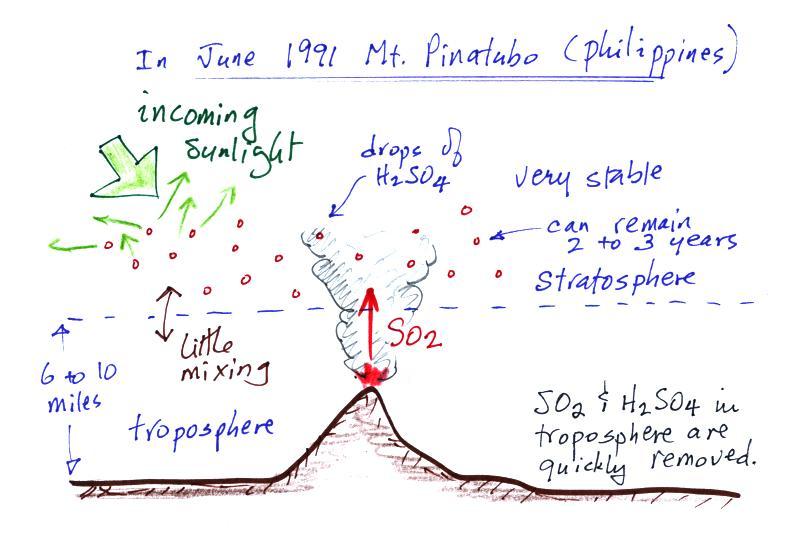 In June 1991 Mt. Pinatubo (philippines)
incoming
sunlight
drops of
H2SO4
very stable
can remain
2 to 3 years
Stratosphere
SO2
little
mixing
6 to 10
miles
troposphere
SO2 & H2SO4 in
troposphere are
quickly removed.